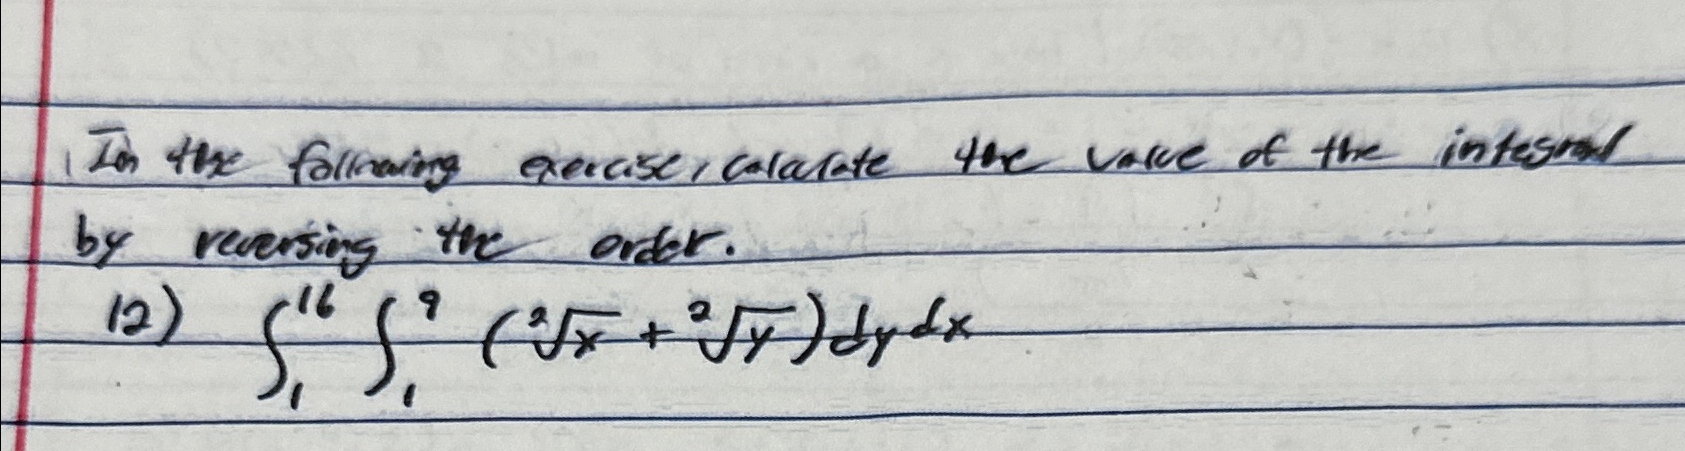 In the following exercise, calculate the value of the integral
by reversing the order.
12) ∫₁¹⁶ ∫₁⁹ (²√x + ²√y) dy dx